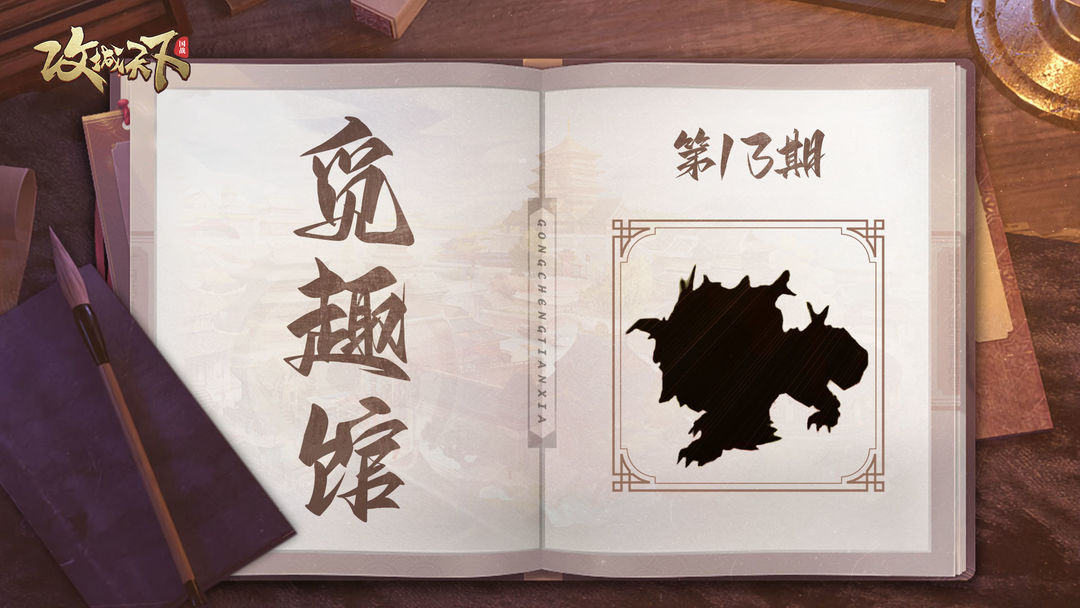 攻城天下
国战
觅趣馆
GONGCHENGTIANXIA
第13期